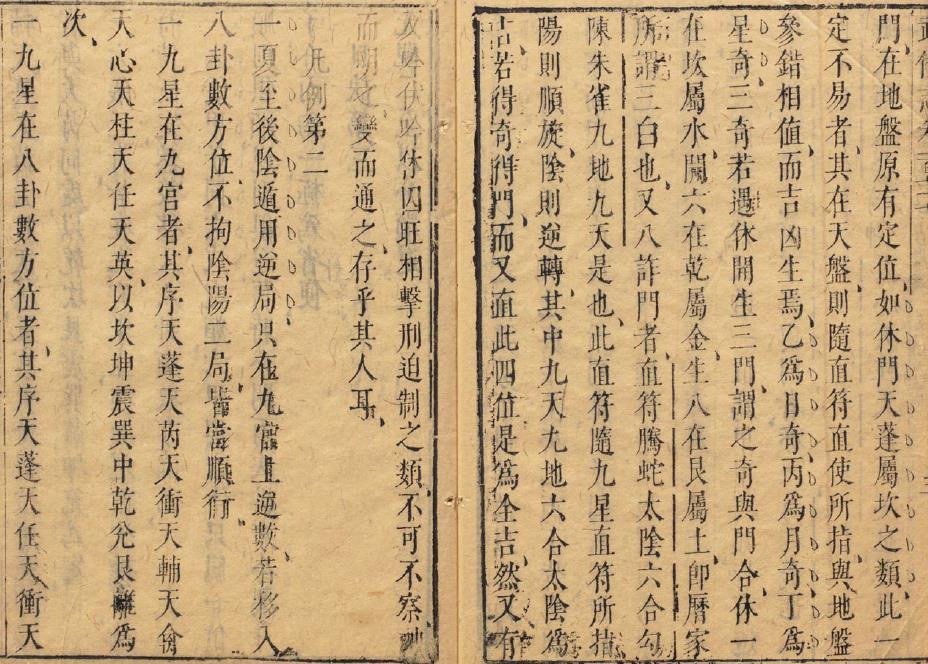 門在地盤原有定位如休門天蓬屬坎之類此一
定不易者其在天盤則隨直符直使所指與地盤
參錯相值而吉凶生焉乙爲日奇丙爲月奇丁爲
星奇三奇若遇休開生三門謂之奇與門合休一
在坎屬水開六在乾屬金生八在艮屬土即曆家
所謂三白也又八詐門者直符螣蛇太陰六合勾
陳朱雀九地九天是也此直符隨九星直符所指
陽則順旋陰則逆轉其中九天九地六合太陰爲
吉若得奇得門而又直此四位是爲全吉然又有
反吟伏吟休囚旺相擊刑迫制之類不可不察
而明之變而通之存乎其人耳
凡例第二
一夏至後陰遁用逆局只在九宮上逆數若移入
八卦數方位不拘陰陽二局皆當順行
一九星在九宮者其序天蓬天芮天衝天輔天禽
天心天柱天任天英以坎坤震巽中乾兌艮離爲
次
一九星在八卦數方位者其序天蓬天任天衝天